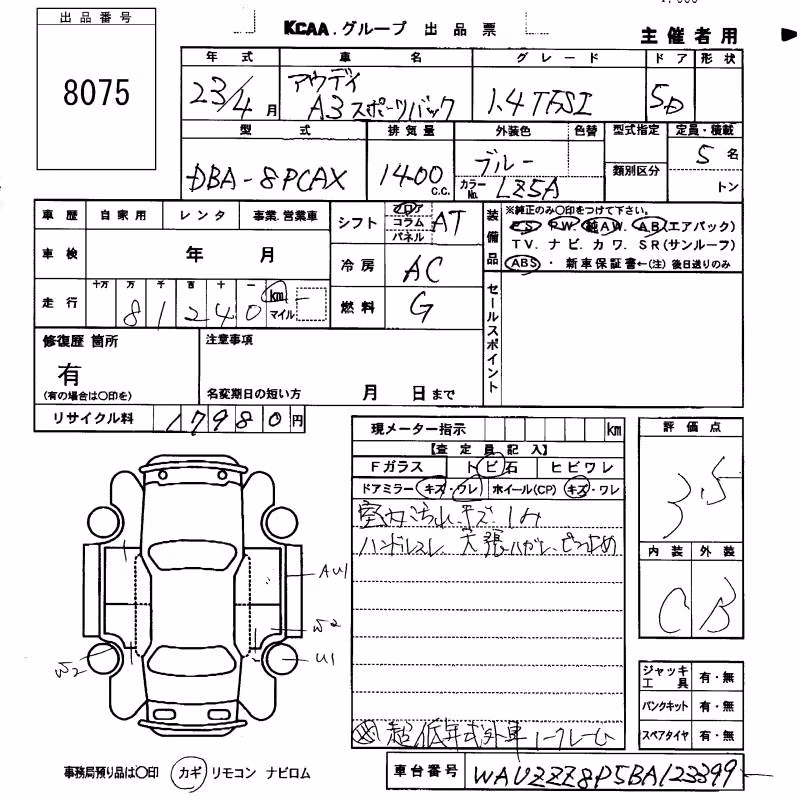 出品番号
8075
KCAA.グループ 出品票
主催者用
年式 車名 グレード ドア 形状
23/4月 アウディ A3スポーツバック 1.4TFSI 5D
型式 排気量 外装色 色替 型式指定 定員・積載
DBA-8PCAX 1400 C.C. ブルー 類別区分 5名
カラーNo. LZ5A トン
車歴 自家用 レンタ 事業.営業車
シフト フロア コラム パネル AT
装備品
※純正のみ〇印をつけて下さい。
PS. PW. 純AW. AB(エアバック)
TV. ナビ. カワ. SR(サンルーフ)
ABS ・ 新車保証書←(注) 後日送りのみ
車検 年 月
冷房 AC
走行 十万 万 千 百 十 一
81240 km マイル
燃料 G
セールスポイント
修復歴 箇所
有
(有の場合は〇印を)
注意事項
名変期日の短い方 月 日まで
リサイクル料 17980円
現メーター指示 km
【査定員記入】
Fガラス トビ石 ヒビワレ
ドアミラー キズ・ワレ ホイール(CP) キズ・ワレ
室内汚れ.キズ.シミ
ハンドルスレ 天張ハガレ.ピン止め
超低年式外車
評価点
3.5
内装 外装
C B
AU1
W2
W2
U1
ジャッキ工具 有・無
パンクキット 有・無
スペアタイヤ 有・無
事務局預り品は〇印 カギ リモコン ナビロム
車台番号 WAUZZZ8P5BA123399